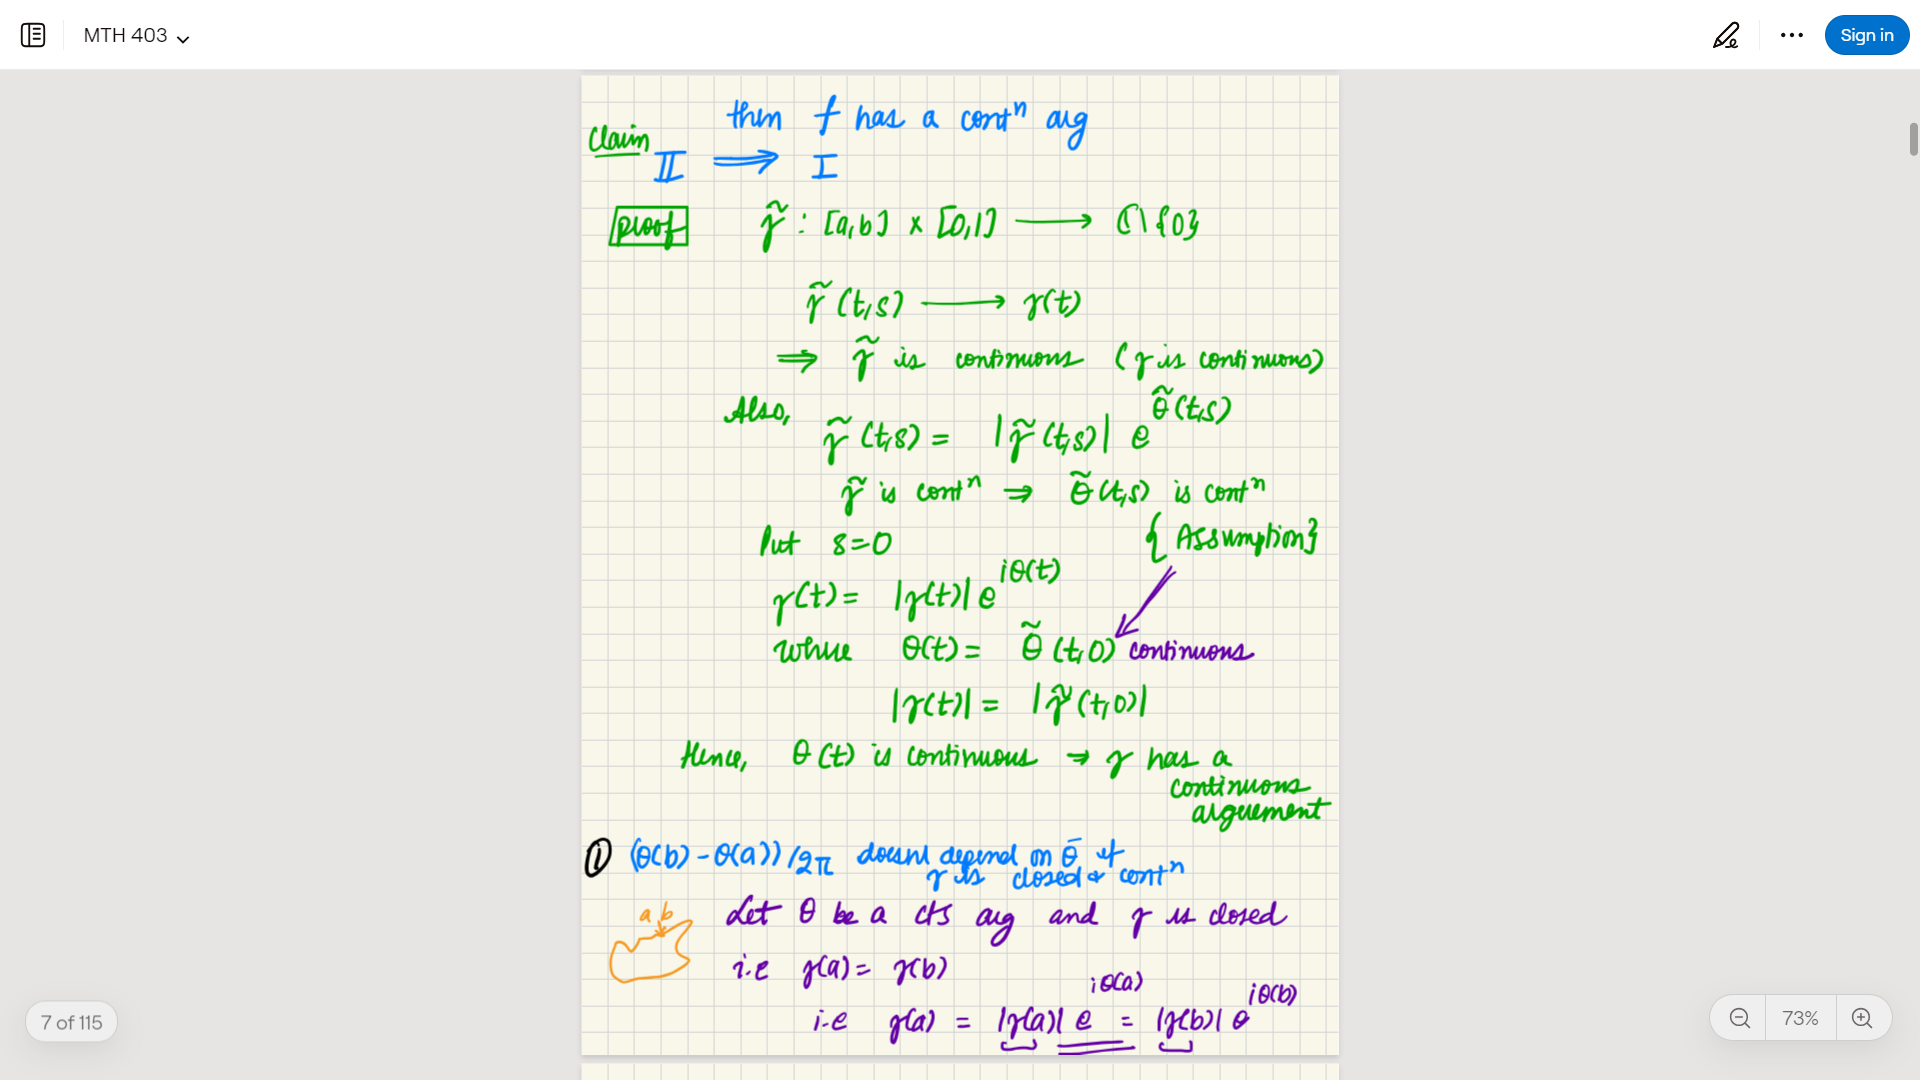 MTH 403
Sign in
then f has a contⁿ arg
Claim
II ⟹ I
proof γ̃ : [a,b] × [0,1] ⟶ ℂ\{0}
γ̃(t,s) ⟶ γ(t)
⟹ γ̃ is continuous (γ is continuous)
Also, γ̃(t,s) = |γ̃(t,s)| e^θ̃(t,s)
γ̃ is contⁿ ⇒ θ̃(t,s) is contⁿ
Put s=0 {Assumption}
γ(t) = |γ(t)| e^iθ(t)
where θ(t) = θ̃(t,0) continuous
|γ(t)| = |γ̃(t,0)|
Hence, θ(t) is continuous ⇒ γ has a
continuous
arguement
① (θ(b) - θ(a))/2π doesnt depend on θ̄ if
γ is closed & contⁿ
a b
Let θ be a cts arg and γ is closed
i.e γ(a) = γ(b)
i.e γ(a) = |γ(a)| e^iθ(a) = |γ(b)| e^iθ(b)
7 of 115
73%